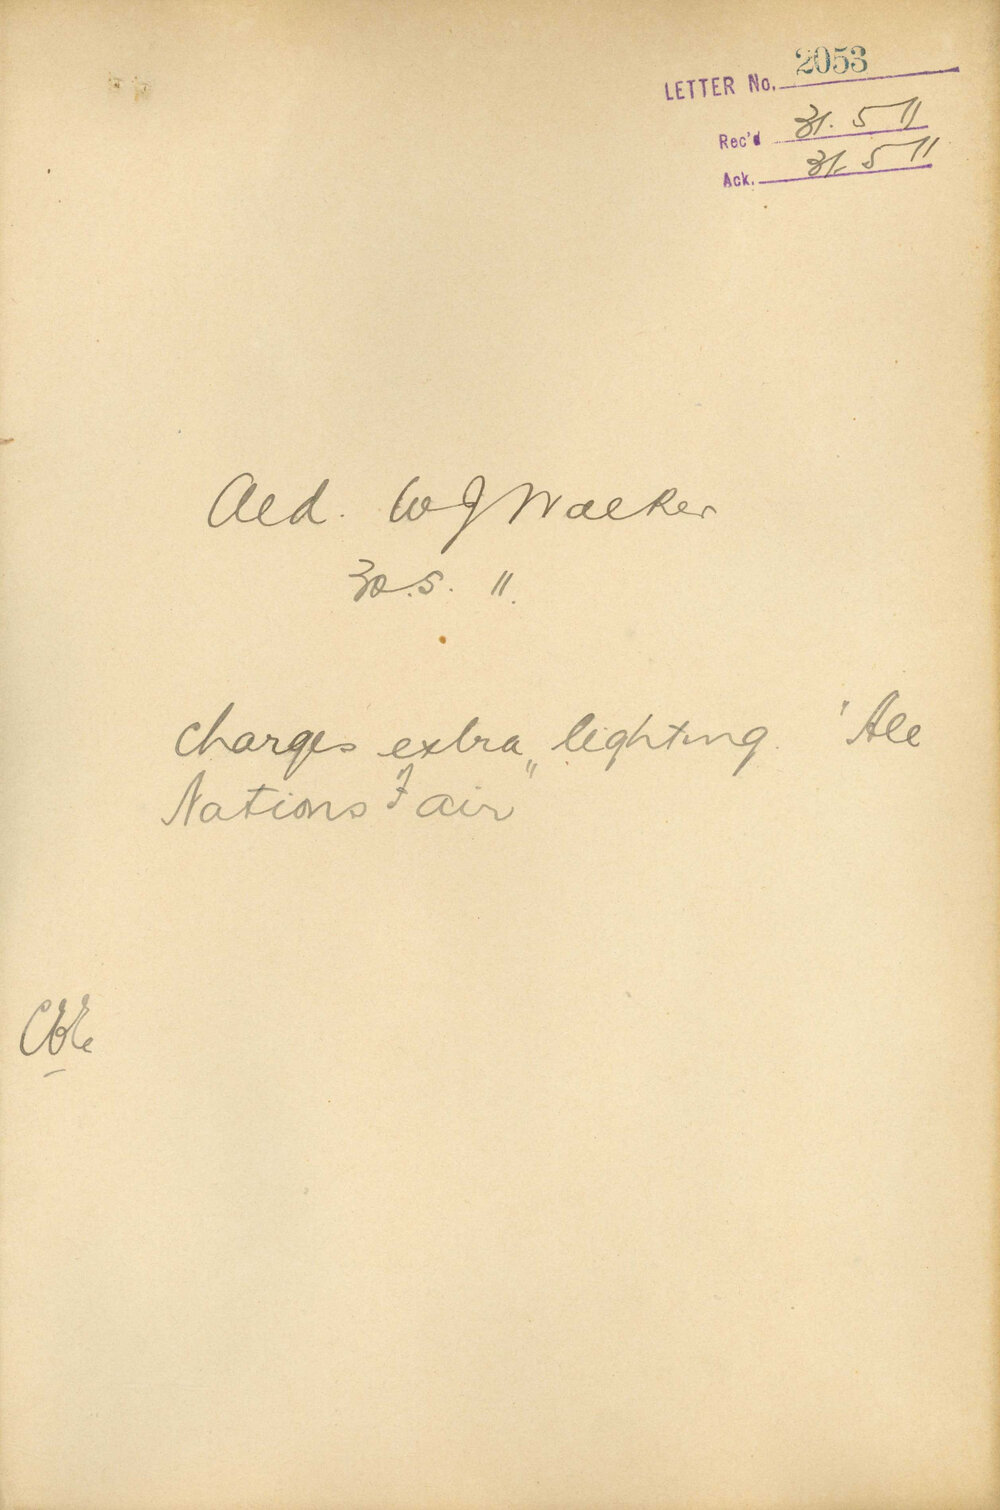 LETTER No. 2053
Rec'd 31. 5 11
Ack. 31. 5 11
Ald. W J Walker
30.5. 11.
Charges extra lighting "All
Nations Fair"